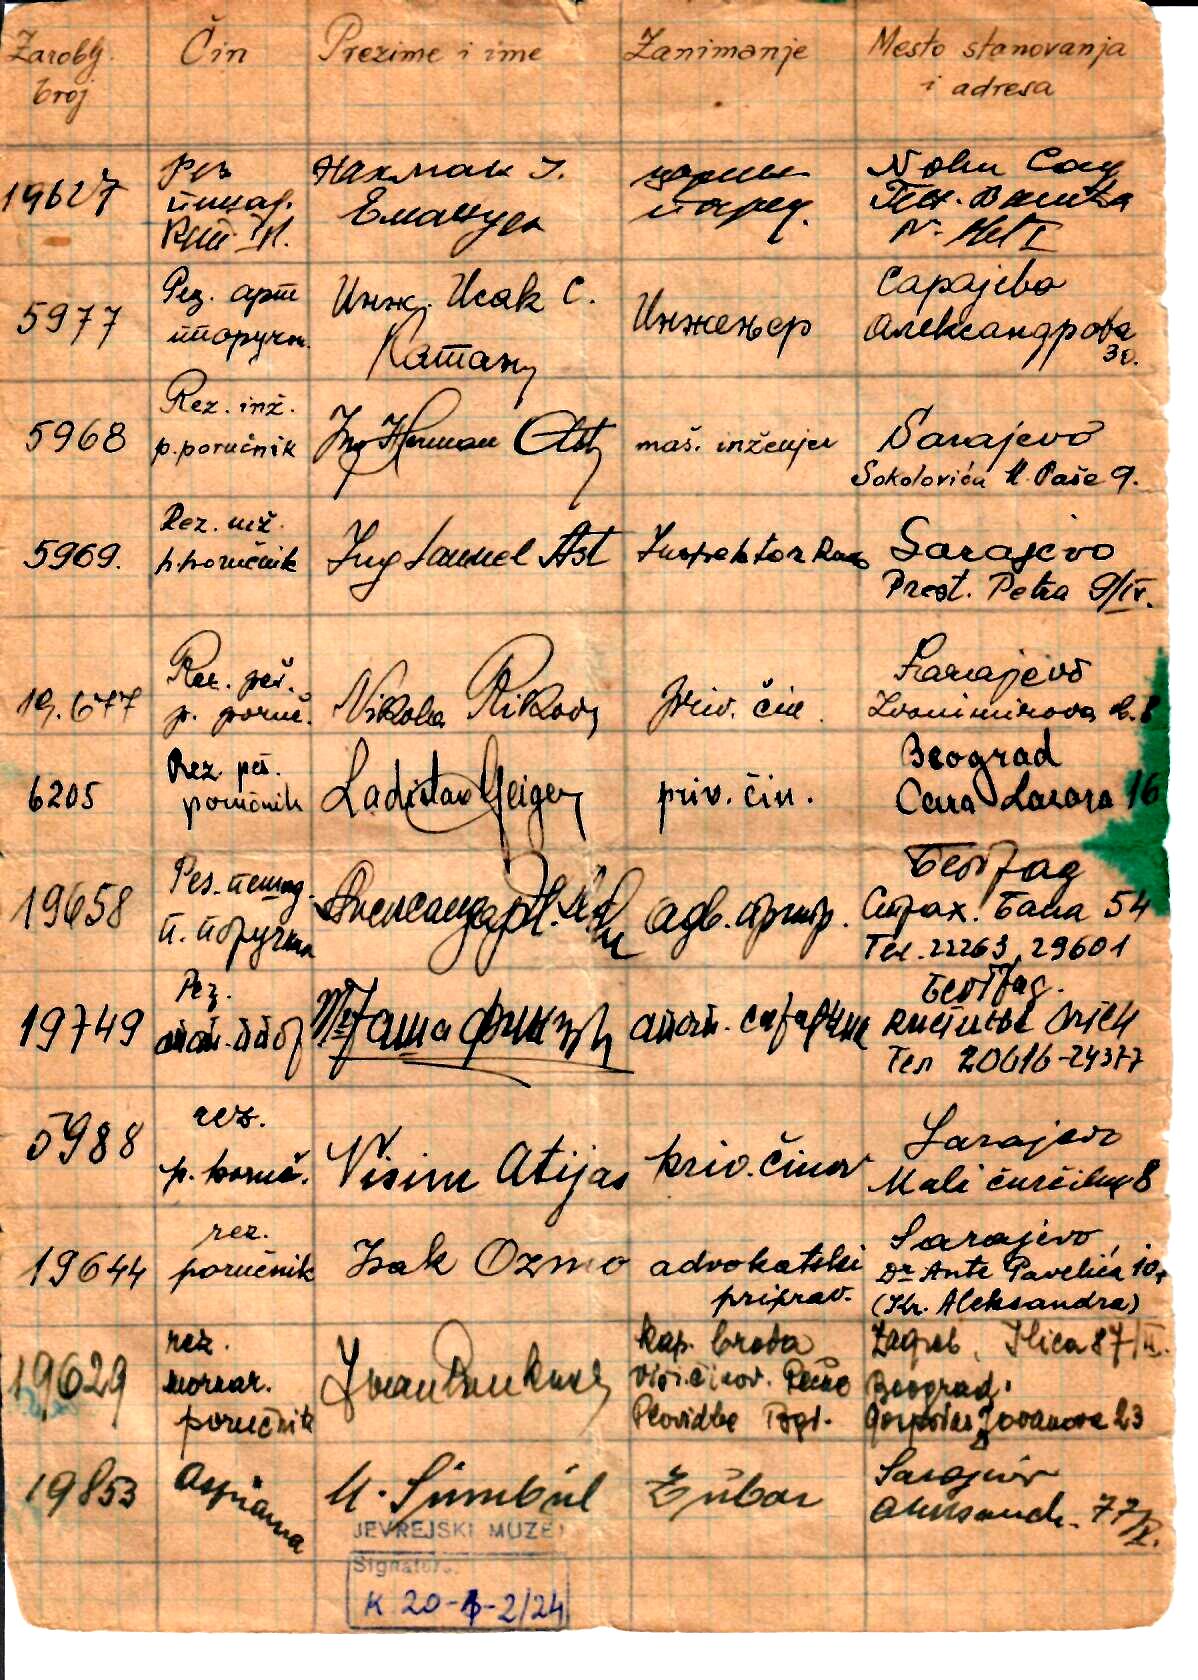 Zaroblj. broj
Čin
Prezime i ime
Zanimanje
Mesto stanovanja i adresa
19627
Рез
Нахман Ј.
Емануел
5977
Рез. арт
поручн.
Инж. Исак С.
Катан
Инжењер
Сарајево
Александрова
30.
5968
Rez. inž.
p.poručnik
Ing Herman Ast
maš. inženjer
Sarajevo
Sokolovića M. Paše 9.
5969.
Rez. inž.
p.poručnik
Ing Samuel Ast
Inspektor Rada
Sarajevo
Prest. Petra 9/IV.
19.677
Rez. peš.
p. poruč.
Nikola
priv. čin.
Sarajevo
Zvonimirova 8
6205
Rez. peš.
poručnik
Ladislav Geiger
priv. čin.
Beograd
Cara Lazara 16
19658
Рез. пешад.
п. поручник
Александар
адв. припр.
Београд
Страх. Бана 54
Тел. 22263, 29601
19749
Рез.
апот.
Београд.
Тел 20616-24377
5988
rez.
p. poruč.
Visim Atijas
priv. činov
Sarajevo
Mali čurčiluk 8
19644
rez.
poručnik
Isak Ozmo
advokatski
priprav.
Sarajevo
Dr Ante Pavelića 10,
(Kr. Aleksandra)
19629
rez.
mornar.
poručnik
Ivan
kap. broda
viši činov. Rečne
Plovidbe Bgd.
Zagreb, Ilica 87/II.
Beograd,
Gospodar Jovanova 23
19853
M. Sümbül
Zubar
Sarajevo
Aleksandr. 77/II.
JEVREJSKI MUZEJ
Signatura.
K 20-4-2/24